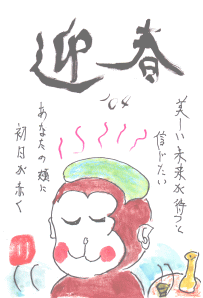 迎春
'04
美しい未来が待つと
信じたい
あなたの頬に
初日が赤く